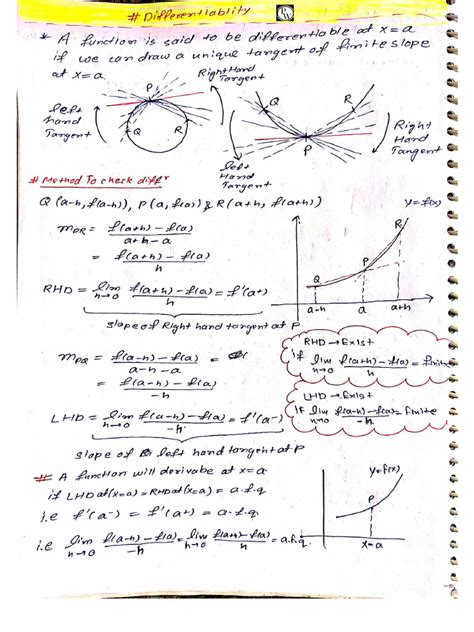 # Differentiablity
* A function is said to be differentiable at x=a
if we can draw a unique tangent of finite slope
at x=a.
Right Hand
Tangent
P
left
hand
Tangent
Q
R
Q
R
P
Right
Hand
Tangent
left
Hand
Tangent
# Method To check diffr
Q (a-h, f(a-h)), P(a, f(a)) & R(a+h, f(a+h))
mPR = f(a+h) - f(a) / a+h-a
= f(a+h) - f(a) / h
RHD = lim h→0 f(a+h) - f(a) / h = f'(a+)
slope of Right hand tangent at P
y=f(x)
R
P
Q
a-h
a
a+h
mPQ = f(a-h) - f(a) / a-h-a =
= f(a-h) - f(a) / -h
RHD → Exist
if lim h→0 f(a+h) - f(a) / h = finite
LHD → Exist
if lim h→0 f(a-h) - f(a) / -h = finite
LHD = lim h→0 f(a-h) - f(a) / -h = f'(a-)
slope of left hand tangent at P
# A function will derivabe at x=a
if LHD at(x=a) = RHD at(x=a) = a.f.q
i.e f'(a-) = f'(a+) = a.f.q
i.e lim h→0 f(a-h) - f(a) / -h = lim h→0 f(a+h) - f(a) / h = a.f.q.
y=f(x)
P
x=a